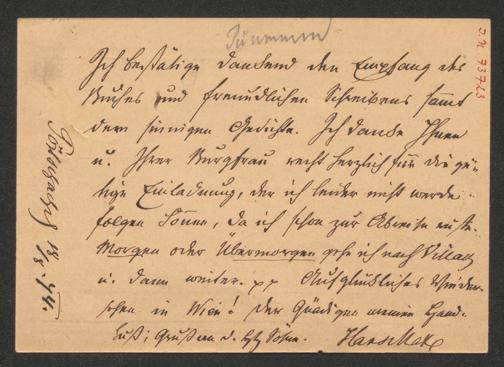 Ich bestätige dankend den Empfang des
Buches und freundlichen Schreibens samt
dem sinnigen Gedichte. Ich danke Ihnen
u. Ihrer Burgfrau recht herzlich für die gü-
tige Einladung, der ich leider nicht werde
folgen können, da ich schon zur Abreise rüste.
Morgen oder Übermorgen gehe ich nach Villach
u. dann weiter. Auf glückliches Wieder-
sehen in Wien! Der Gnädigen meinen Hand-
kuß; Gruß an d. Söhne. Hans
I.N. 73763